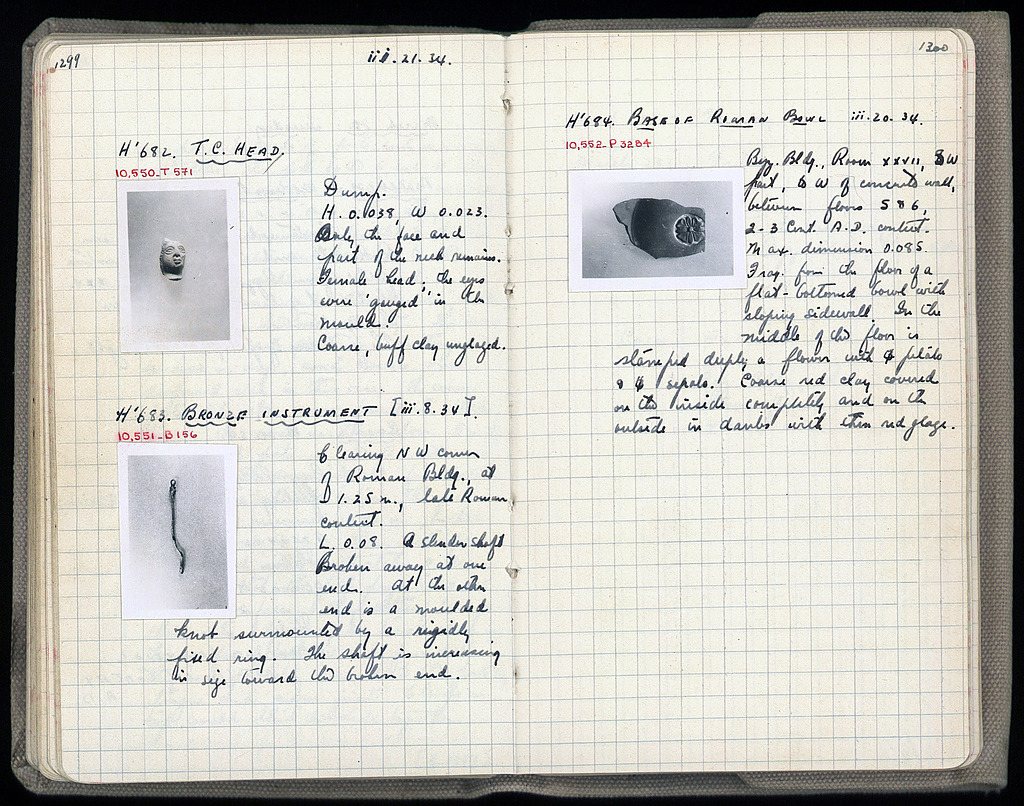 1299
iii.21.34.
H'682. T.C. HEAD.
10,550-T 571
Dump.
H. 0.038, W 0.023.
Only the face and
part of the neck remains.
Female head; the eyes
were 'gouged' in the
mould.
Coarse, buff clay unglazed.
H'683. BRONZE INSTRUMENT [iii.8.34].
10,551-B156
Clearing NW corner
of Roman Bldg., at
D 1.25 m., late Roman
context.
L. 0.08. A slender shaft
Broken away at one
end. At the other
end is a moulded
knot surmounted by a rigidly
fixed ring. The shaft is increasing
in size toward the broken end.
1300
H'684. BASE OF ROMAN BOWL iii.20.34.
10,552-P3284
Byz. Bldg., Room xxvii, SW
part, W of concrete wall,
between floors 5 & 6,
2-3 Cent. A.D. context.
Max. dimension 0.085.
Frag. from the floor of a
flat-bottomed bowl with
sloping sidewall. In the
middle of the floor is
stamped deeply a flower with petals
& sepals. Coarse red clay covered
on the inside completely and on the
outside in daubs with thin red glaze.